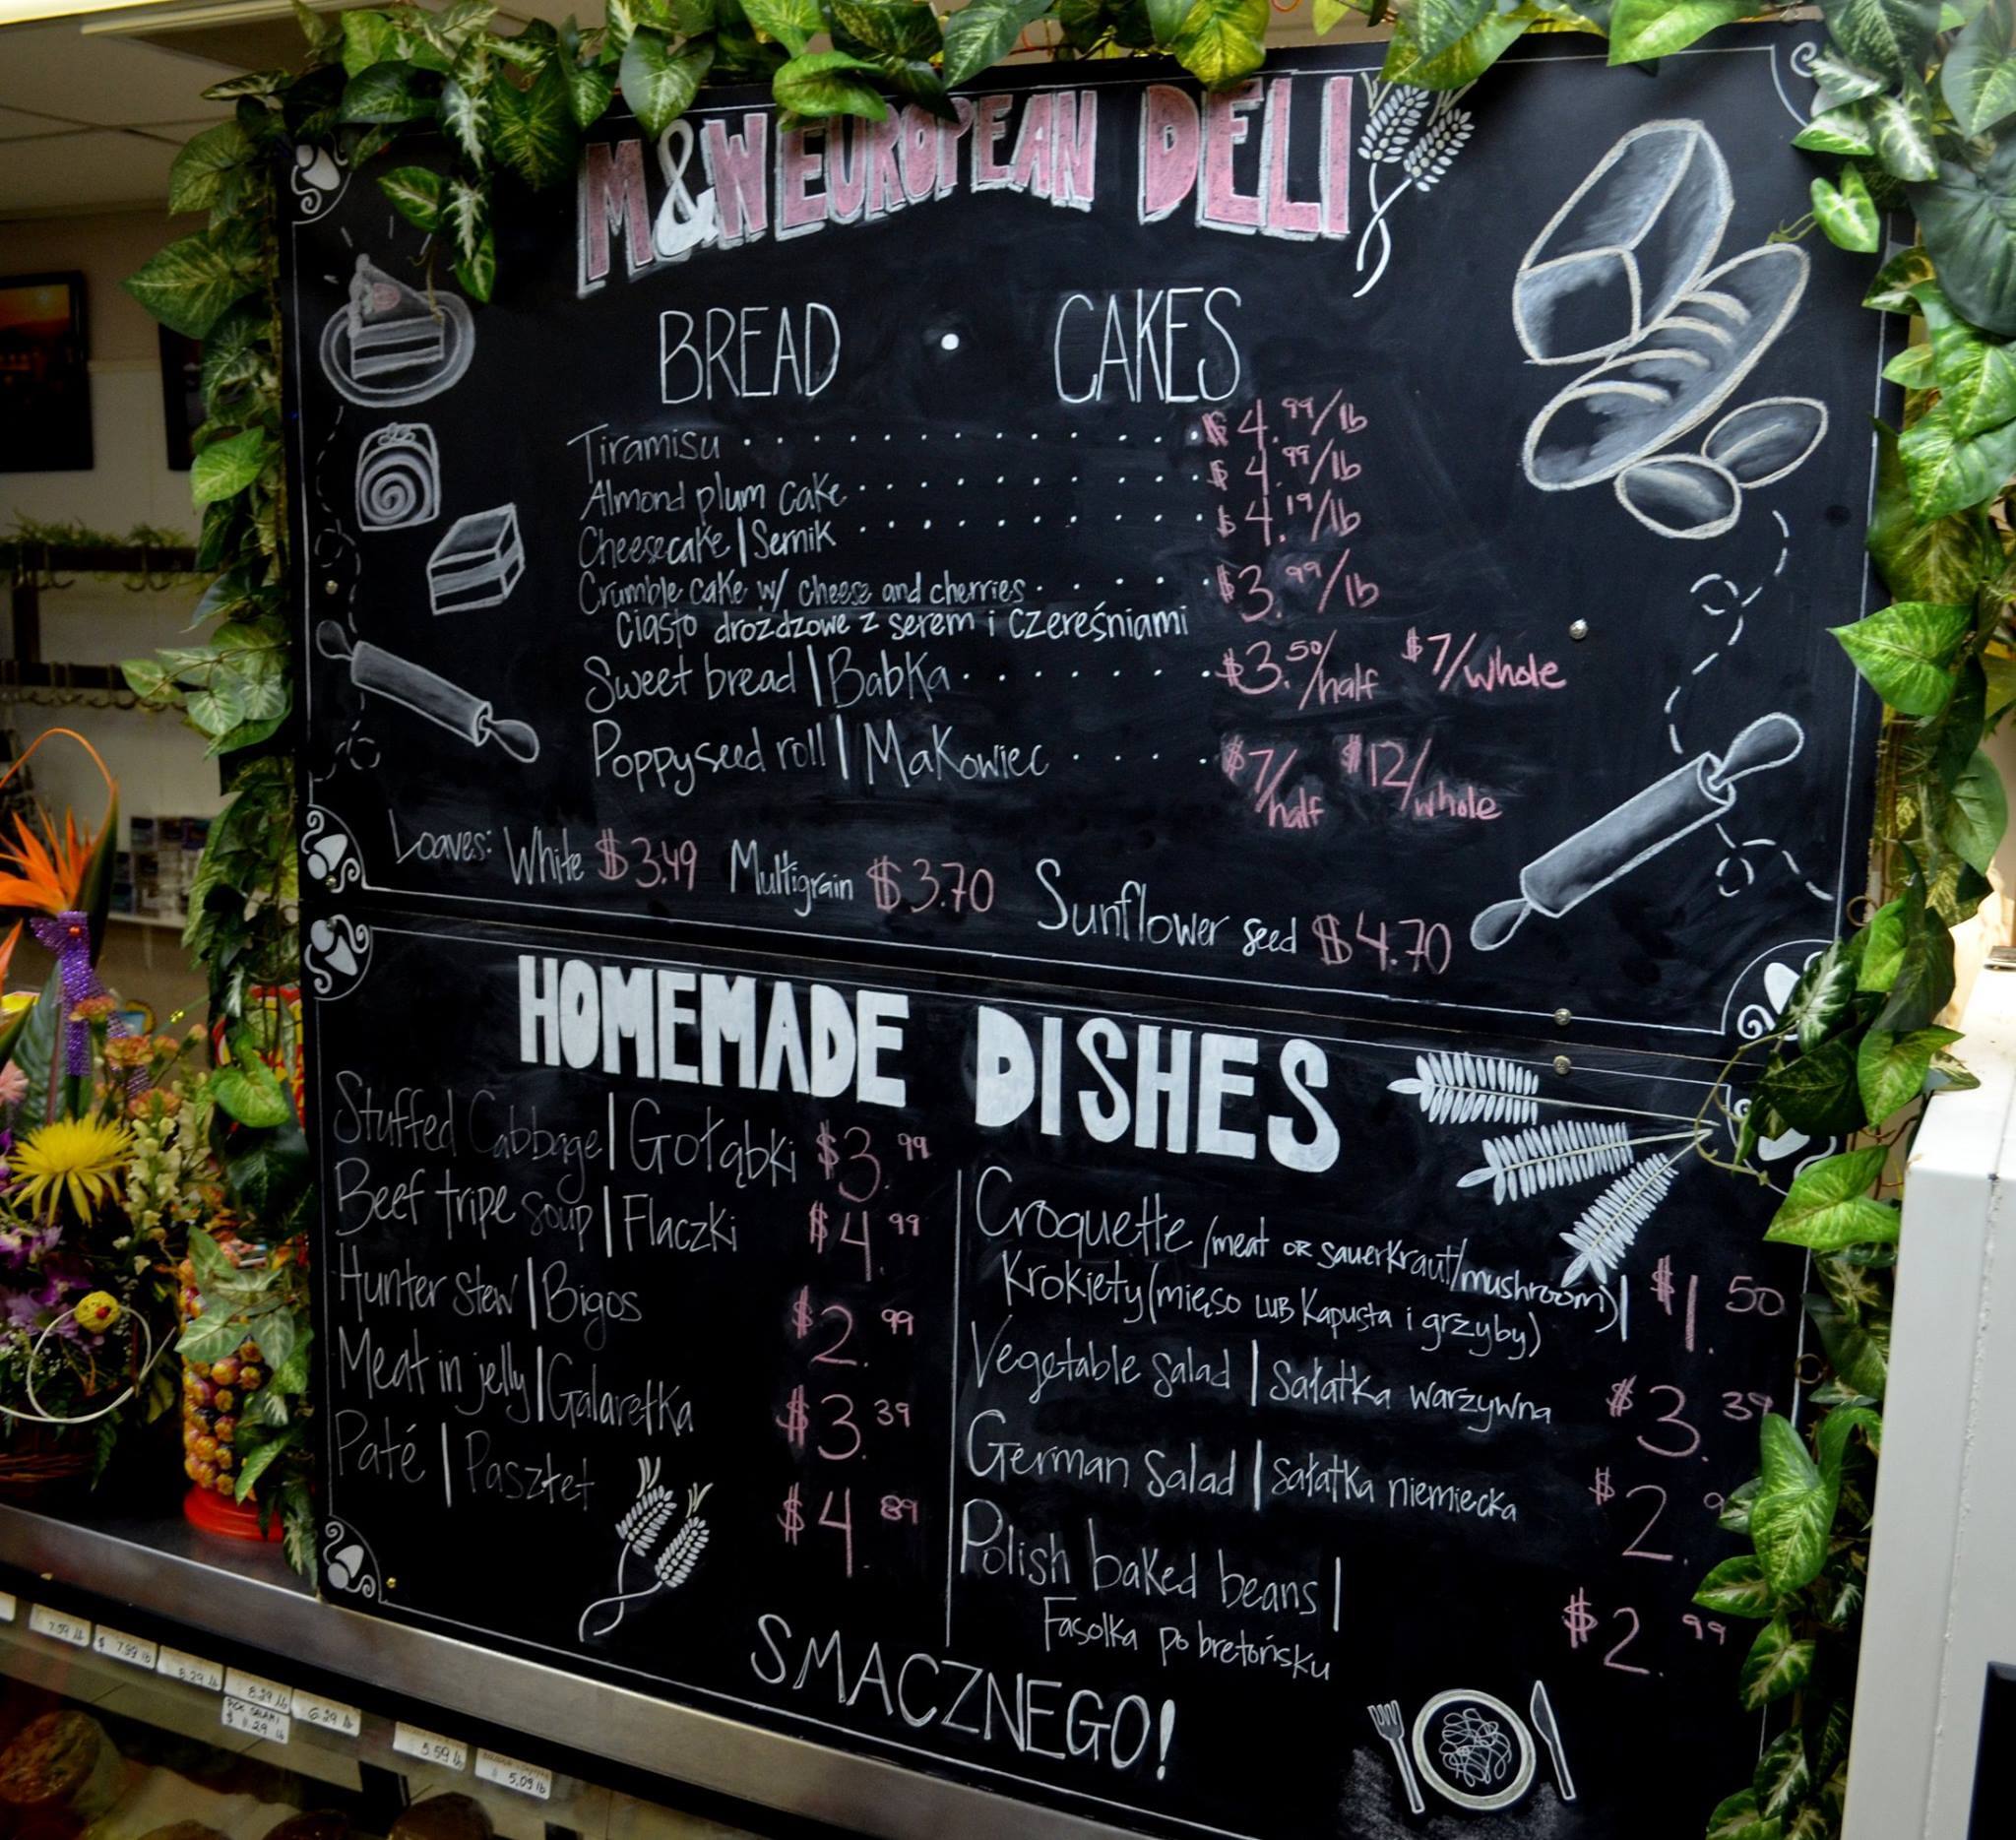 M&W EUROPEAN DELI
BREAD • CAKES
Tiramisu . . . . . . . . . . . . . . $4.99/lb
Almond plum cake . . . . . . . . . . . $4.99/lb
Cheesecake | Sernik . . . . . . . . . . . $4.19/lb
Crumble cake w/ cheese and cherries . . . . . . $3.99/lb
Ciasto drożdzowe z serem i czereśniami
Sweet bread | Babka . . . . . . . . $3.50/half $7/whole
Poppyseed roll | Makowiec . . . . $7/half $12/whole
Loaves: White $3.49 Multigrain $3.70 Sunflower seed $4.70
HOMEMADE DISHES
Stuffed Cabbage | Gołąbki $3.99
Beef tripe soup | Flaczki $4.99
Hunter stew | Bigos $2.99
Meat in jelly | Galaretka $3.39
Paté | Pasztet $4.89
Croquette (meat OR sauerkraut/mushroom) | $1.50
Krokiety (mięso LUB Kapusta i grzyby)
Vegetable salad | Sałatka warzywna $3.39
German Salad | Sałatka niemiecka $2.9
Polish baked beans | $2.99
Fasolka po bretońsku
SMACZNEGO!
7.59 lb
$ 7.99 lb
8.29 lb
8.29 lb
SALAMI
6.29 lb
5.59 lb
5.09 lb